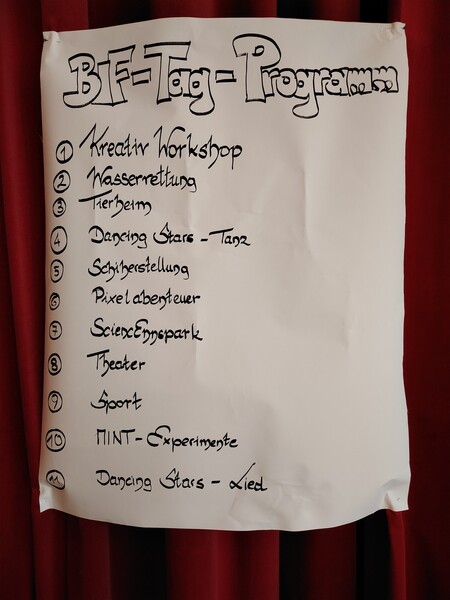 BF-Tag-Programm
1 Kreativ Workshop
2 Wasserrettung
3 Tierheim
4 Dancing Stars - Tanz
5 Schiherstellung
6 Pixelabenteuer
7 SciencEnnspark
8 Theater
9 Sport
10 MINT-Experimente
11 Dancing Stars - Lied